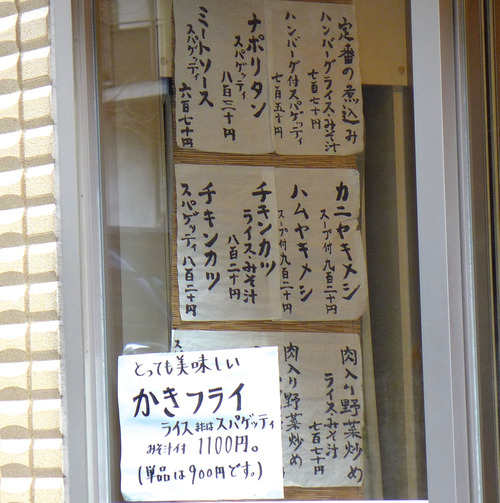 定番の煮込み
ハンバーグライス・みそ汁
七百七十円
ハンバーグ付スパゲッティ
七百五十円
ナポリタン
スパゲッティ
八百二十円
ミートソース
スパゲッティ
六百七十円
カニヤキメシ
スープ付九百二十円
ハムヤキメシ
スープ付九百二十円
チキンカツ
ライス・みそ汁
八百二十円
チキンカツ
スパゲッティ八百二十円
肉入り野菜炒め
ライスみそ汁
七百七十円
肉入り野菜炒め
とっても美味しい
かきフライ
ライス または スパゲッティ
みそ汁付 1100円。
(単品は900円です。)